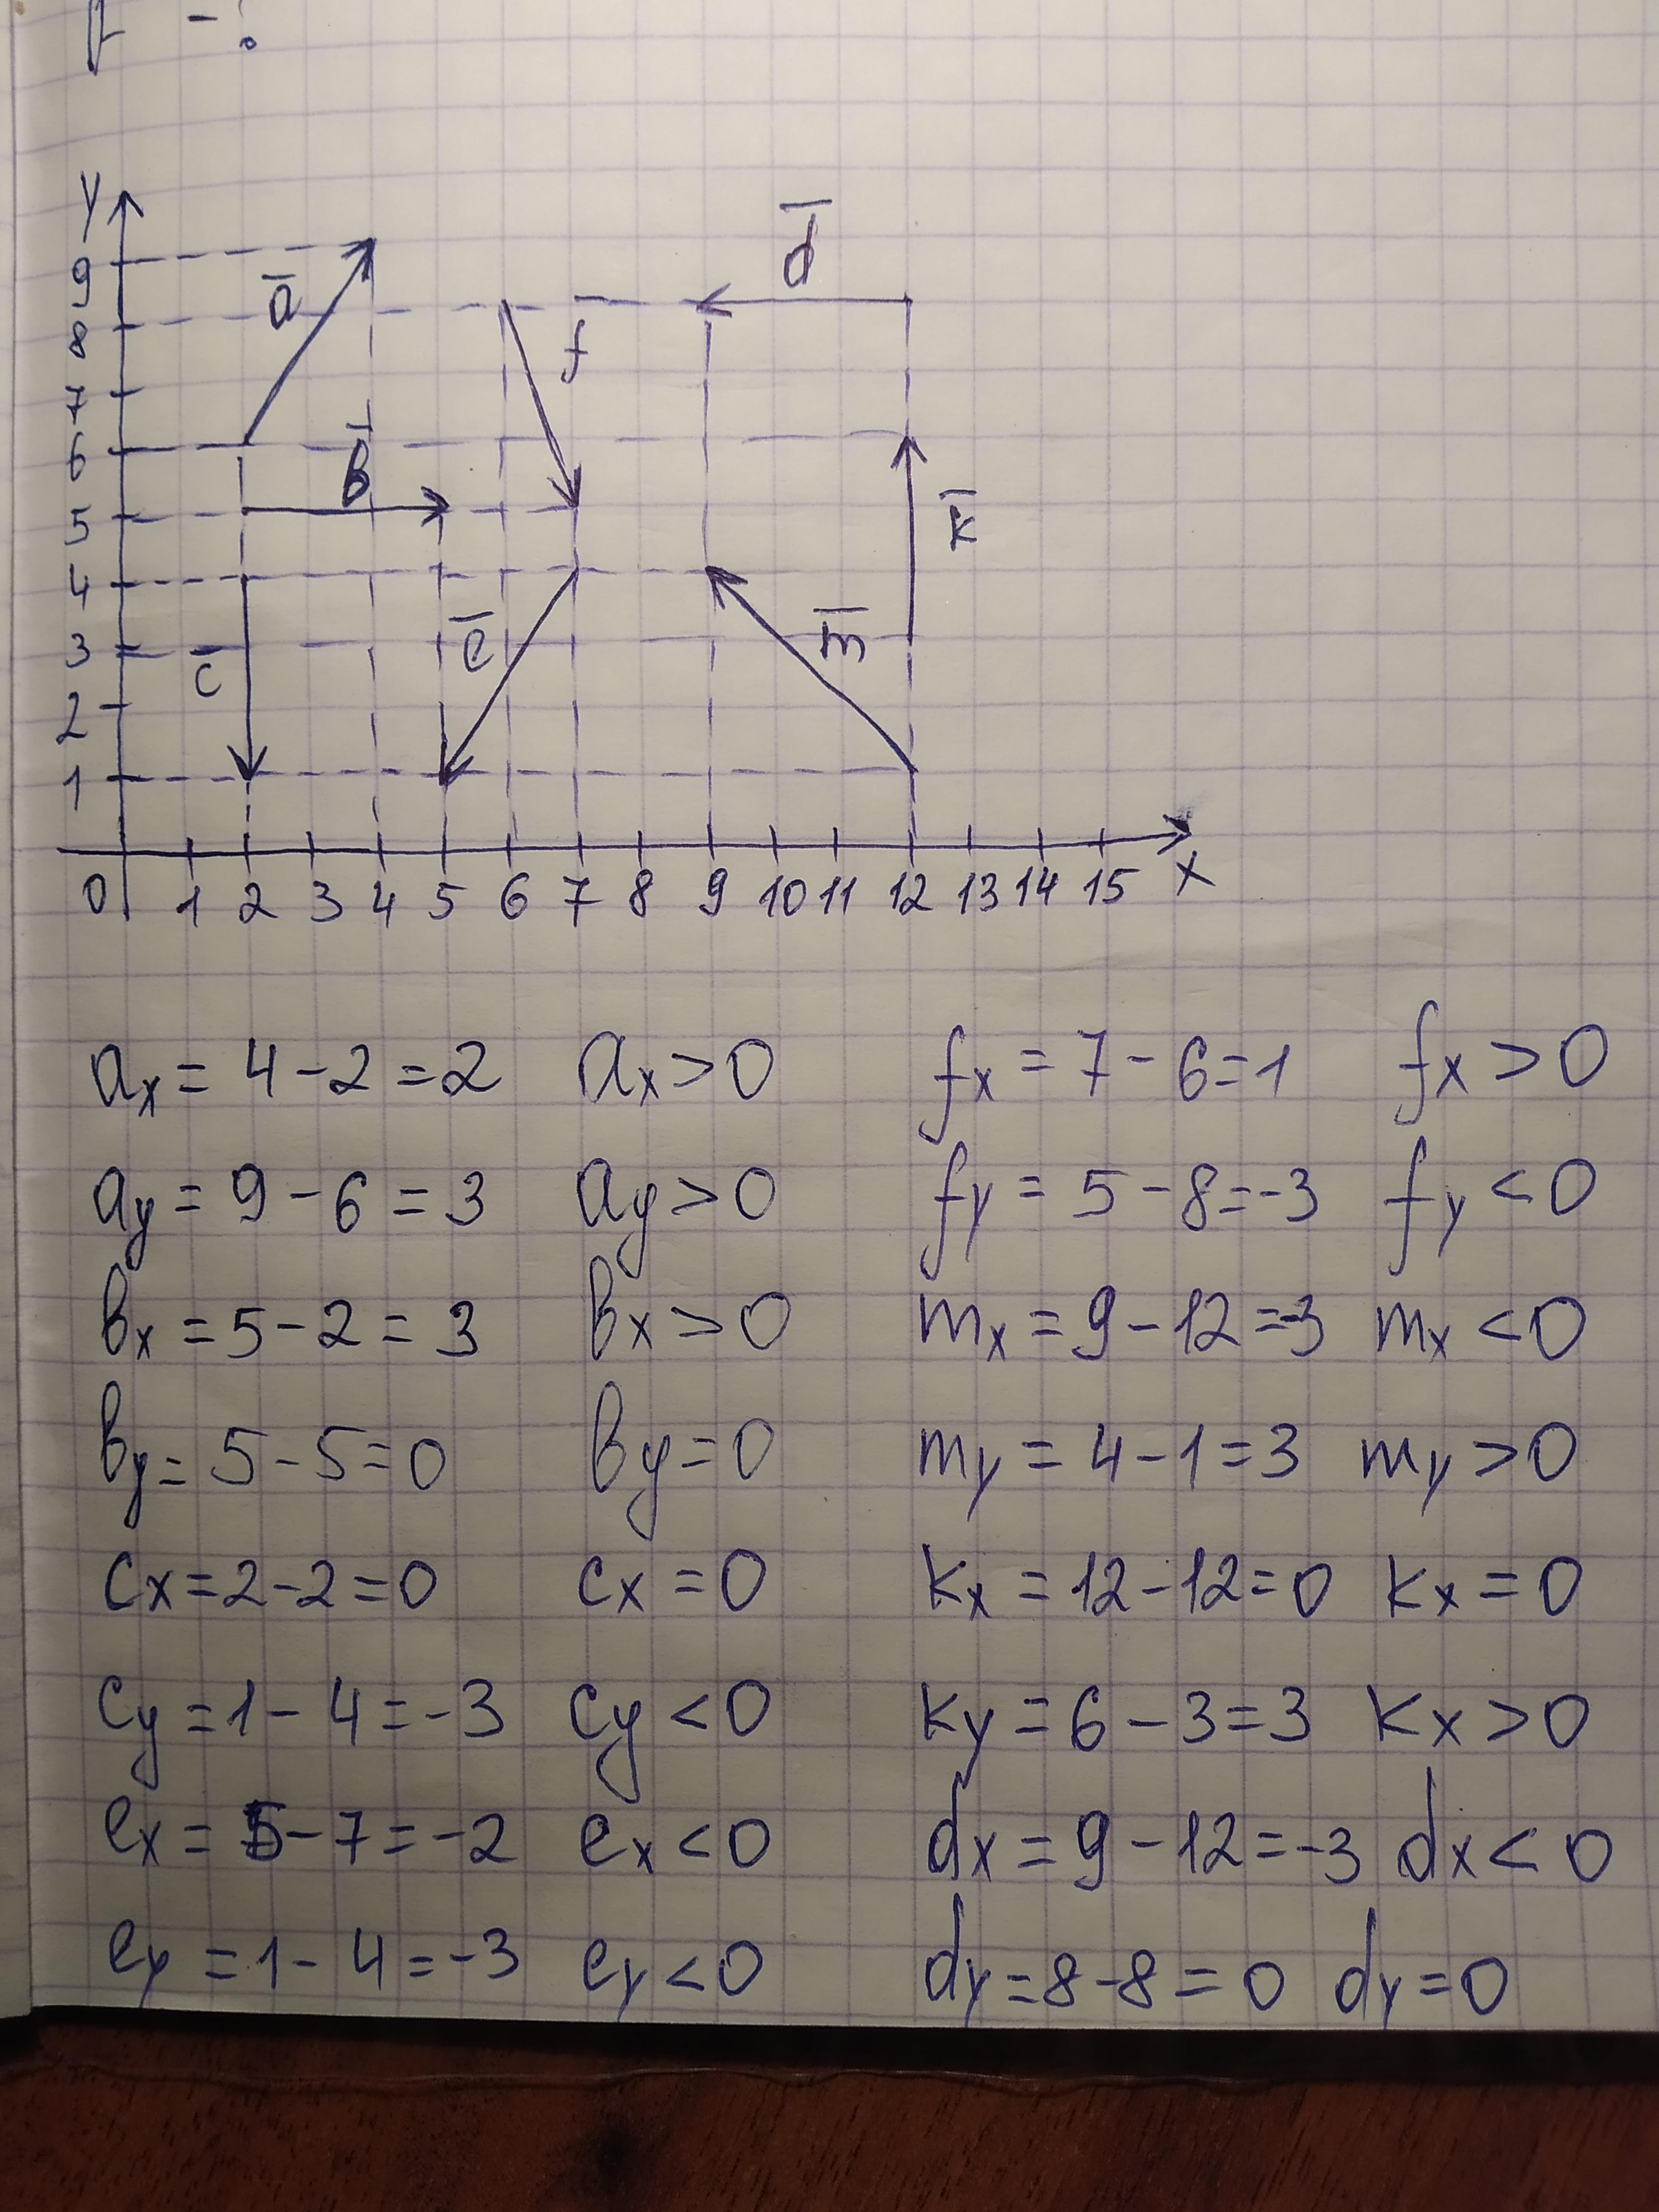 y
9
8
7
6
5
4
3
2
1
0 1 2 3 4 5 6 7 8 9 10 11 12 13 14 15 x
a̅
b̅
c̅
d̅
e̅
f̅
m̅
k̅
ax = 4 - 2 = 2 ax > 0 fx = 7 - 6 = 1 fx > 0
ay = 9 - 6 = 3 ay > 0 fy = 5 - 8 = -3 fy < 0
bx = 5 - 2 = 3 bx > 0 mx = 9 - 12 = -3 mx < 0
by = 5 - 5 = 0 by = 0 my = 4 - 1 = 3 my > 0
cx = 2 - 2 = 0 cx = 0 kx = 12 - 12 = 0 kx = 0
cy = 1 - 4 = -3 cy < 0 ky = 6 - 3 = 3 kx > 0
ex = 5 - 7 = -2 ex < 0 dx = 9 - 12 = -3 dx < 0
ey = 1 - 4 = -3 ey < 0 dy = 8 - 8 = 0 dy = 0